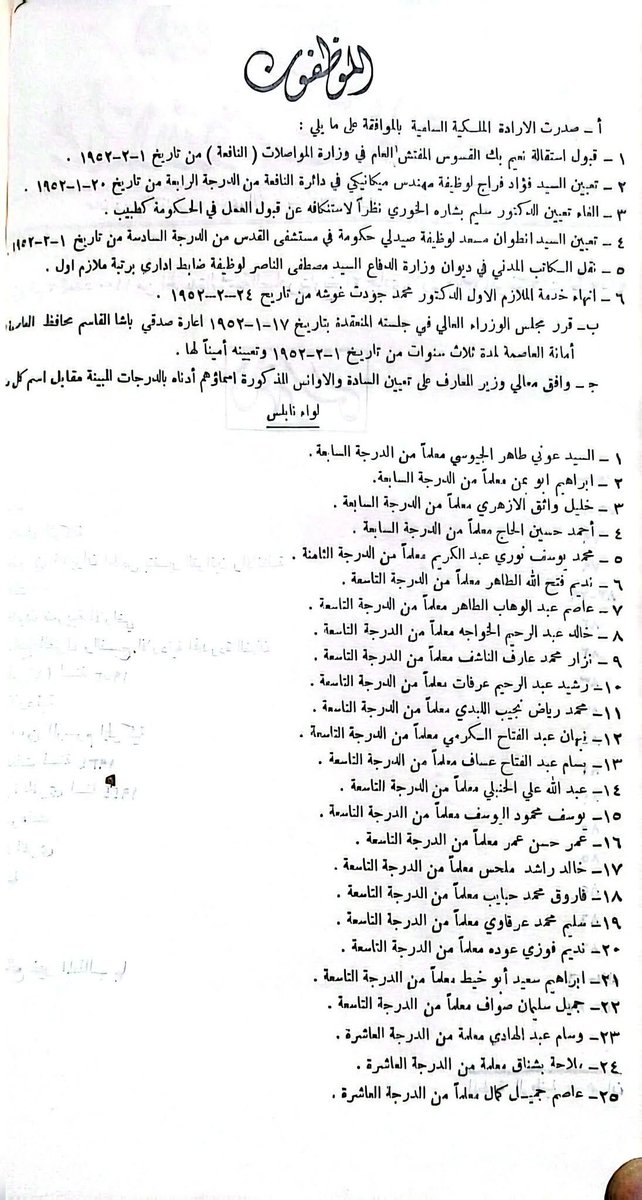 الموظفون
أ – صدرت الارادة الملكية السامية بالموافقة على ما يلي :
١ – قبول استقالة نعيم بك القسوس المفتش العام في وزارة المواصلات ( النافعة ) من تاريخ ١-٢-١٩٥٢ .
٢ – تعيين السيد فؤاد فراج لوظيفة مهندس ميكانيكي في دائرة النافعة من الدرجة الرابعة من تاريخ ٢٠-١-١٩٥٢ .
٣ – الغاء تعيين الدكتور سليم بشاره الخوري نظراً لاستنكافه عن قبول العمل في الحكومة كطبيب .
٤ – تعيين السيد انطوان مسعد لوظيفة صيدلي حكومة في مستشفى القدس من الدرجة السادسة من تاريخ ١-٢-١٩٥٢
٥ – نقل الكاتب المدني في ديوان وزارة الدفاع السيد مصطفى الناصر لوظيفة ضابط اداري برتبة ملازم اول .
٦ – انهاء خدمة الملازم الاول الدكتور محمد جودت غوشه من تاريخ ٢٤-٢-١٩٥٢ .
ب – قرر مجلس الوزراء العالي في جلسته المنعقدة بتاريخ ١٧-١-١٩٥٢ اعارة صدقي باشا القاسم محافظ
أمانة العاصمة لمدة ثلاث سنوات من تاريخ ١-٢-١٩٥٢ وتعيينه أميناً لها .
ج – وافق معالي وزير المعارف على تعيين السادة والاوانس المذكورة اسماؤهم أدناه بالدرجات المبينة مقابل اسم كل
لواء نابلس
١ – السيد عوني طاهر الجيوسي معلماً من الدرجة السابعة .
٢ – ابراهيم ابو يمن معلماً من الدرجة السابعة.
٣ – خليل واثق الازهري معلماً من الدرجة السابعة .
٤ – أحمد حسين الحاج معلماً من الدرجة السابعة .
٥ – محمد يوسف نوري عبد الكريم معلماً من الدرجة الثامنة .
٦ – نديم فتح الله الطاهر معلماً من الدرجة التاسعة .
٧ – عاصم عبد الوهاب الطاهر معلماً من الدرجة التاسعة .
٨ – خالد عبد الرحيم الخواجه معلماً من الدرجة التاسعة .
٩ – نزار محمد عارف الناشف معلماً من الدرجة التاسعة .
١٠ – رشيد عبد الرحيم عرفات معلماً من الدرجة التاسعة .
١١ – محمد رياض نجيب اللبدي معلماً من الدرجة التاسعة .
١٢ – نبهان عبد الفتاح السكرمي معلماً من الدرجة التاسعة .
١٣ – بسام عبد الفتاح عساف معلماً من الدرجة التاسعة .
١٤ – عبد الله علي الحنبلي معلماً من الدرجة التاسعة .
١٥ – يوسف محمود اليوسف معلماً من الدرجة التاسعة .
١٦ – عمر حسن عمر معلماً من الدرجة التاسعة .
١٧ – خالد راشد ملحس معلماً من الدرجة التاسعة .
١٨ – فاروق محمد حبايب معلماً من الدرجة التاسعة .
١٩ – سليم محمد عرقاوي معلماً من الدرجة التاسعة .
٢٠ – نديم فوزي عوده معلماً من الدرجة التاسعة .
٢١ – ابراهيم سعيد أبو خيط معلماً من الدرجة التاسعة .
٢٢ – جميل سليمان صواف معلماً من الدرجة التاسعة .
٢٣ – وسام عبد الهادي معلمة من الدرجة العاشرة .
٢٤ – ملاحة بشناق معلمة من الدرجة العاشرة .
٢٥ – عاصم جميل كمال معلماً من الدرجة العاشرة .